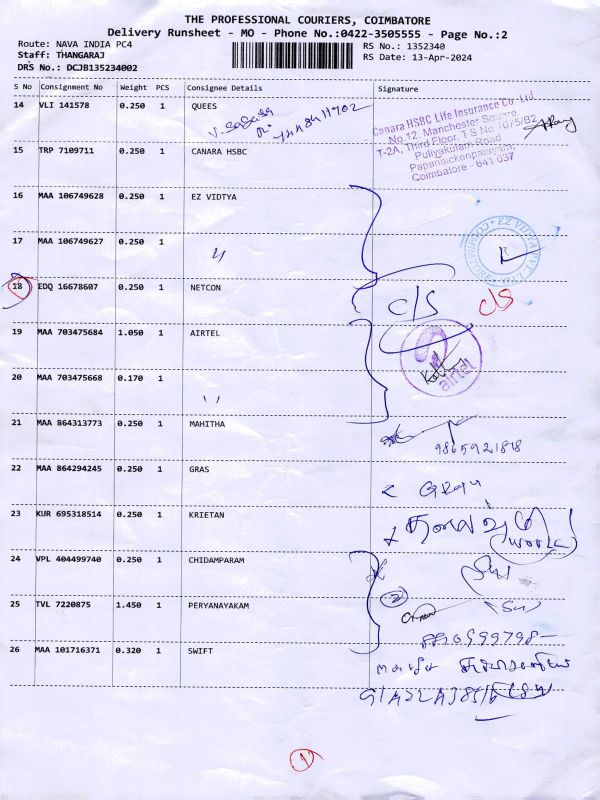 THE PROFESSIONAL COURIERS, COIMBATORE
Delivery Runsheet - MO - Phone No.:0422-3505555 - Page No.:2
Route: NAVA INDIA PC4
Staff: THANGARAJ
DRS No.: DCJB135234002
RS No.: 1352340
RS Date: 13-Apr-2024
S No Consignment No Weight PCS Consignee Details Signature
14 VLI 141578 0.250 1 QUEES
Canara HSBC Life Insurance Co Ltd
No.12, Manchester Square,
T-2A, Third Floor, T S No 1075/B2
Puliyakulam Road
Papanaickenpalayam,
Coimbatore - 641 037
15 TRP 7109711 0.250 1 CANARA HSBC
16 MAA 106749628 0.250 1 EZ VIDTYA
17 MAA 106749627 0.250 1 "
EZ VIDYA PVT. LTD.
18 EDQ 16678607 0.250 1 NETCON
C/S C/S
19 MAA 703475684 1.050 1 AIRTEL
airtel
20 MAA 703475668 0.170 1 "
21 MAA 864313773 0.250 1 MAHITHA
9865921818
22 MAA 864294245 0.250 1 GRAS
23 KUR 695318514 0.250 1 KRIETAN
(work)
24 VPL 404499740 0.250 1 CHIDAMPARAM
25 TVL 7220875 1.450 1 PERYANAYAKAM
2
26 MAA 101716371 0.320 1 SWIFT
1